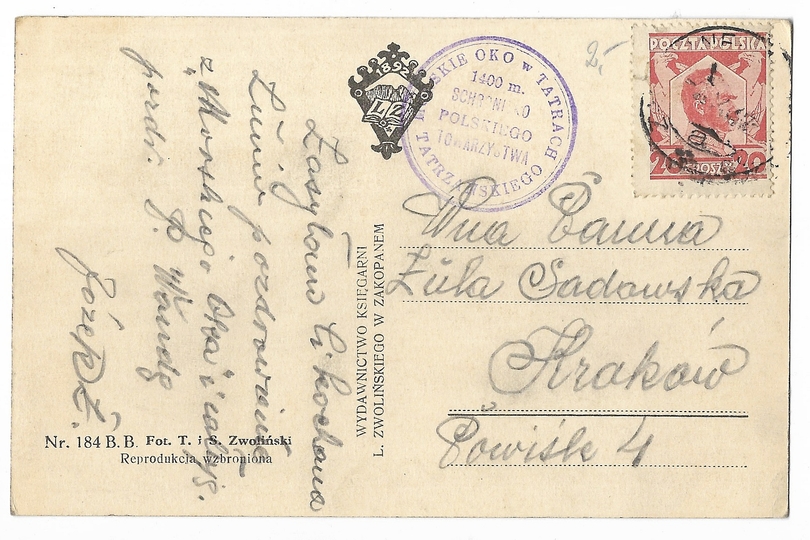 Zasyłam Ci kochana
Zuniu pozdrowienia
z "Morskiego Oka" i całuję.
pozdr. P. Wandę
Józek Ż.
1892
LZ
MORSKIE OKO w TATRACH
1400 m.
SCHRONISKO
POLSKIEGO
TOWARZYSTWA
TATRZAŃSKIEGO
2,-
POCZTA POLSKA
20 GROSZY 20
Wna Panna
Zula Sadowska
Kraków
Powiśle 4
WYDAWNICTWO KSIĘGARNI
L. ZWOLIŃSKIEGO W ZAKOPANEM
Nr. 184 B. B. Fot. T. i S. Zwoliński
Reprodukcja wzbroniona